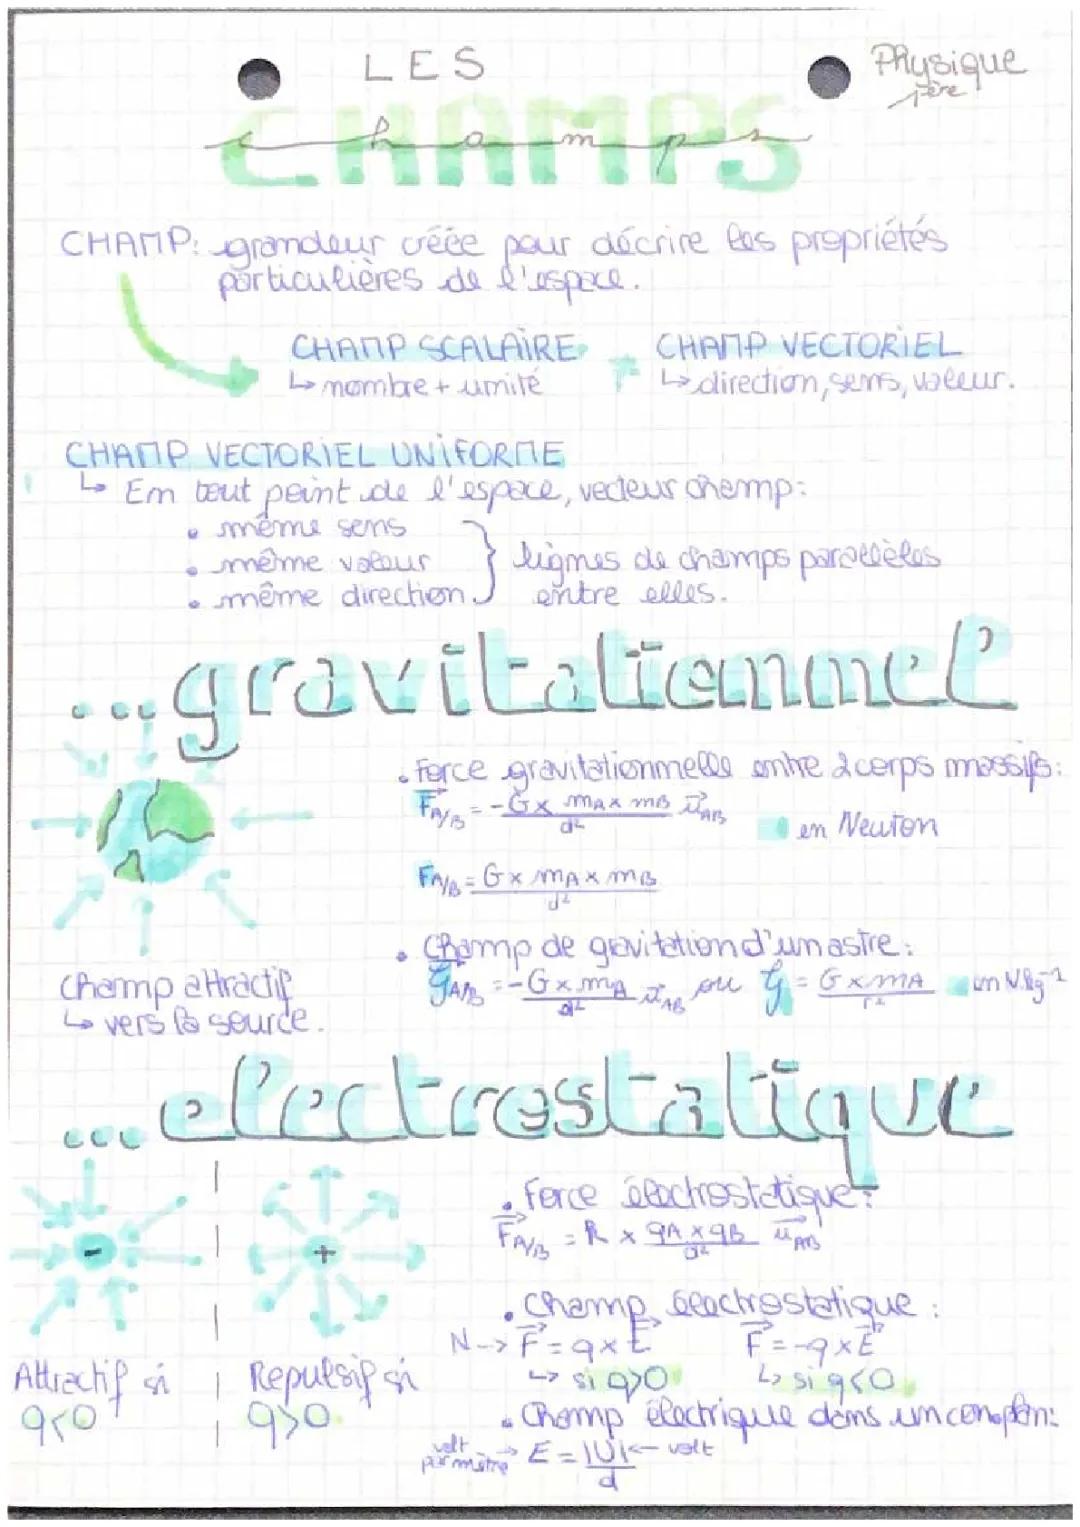 LES
Physique
1ère
CHAMPS
champs
CHAMP: grandeur créée pour décrire les propriétés
particulières de l'espace.
CHAMP SCALAIRE ≠ CHAMP VECTORIEL
↳ nombre + unité
↳ direction, sens, valeur.
CHAMP VECTORIEL UNIFORME
↳ En tout point de l'espace, vecteur champ:
• même sens
• même valeur
• même direction.
} lignes de champs parallèles
entre elles.
...gravitationnel
• Force gravitationnelle entre 2 corps massifs:
F⃗A/B = -G x mA x mB / d² u⃗AB
en Newton
FA/B = G x mA x mB / d²
• Champ de gravitation d'un astre:
𝒢⃗A/B = -G x mA / d² u⃗AB ou 𝒢 = G x mA / r² en N.kg⁻¹
Champ attractif
↳ vers la source.
...electrostatique
- +
• Force électrostatique:
F⃗A/B = k x qA x qB / d² u⃗AB
• Champ électrostatique:
N --> F⃗ = q x E⃗ F⃗ = -q x E⃗
↳ si q>0 ↳ si q<0
Attractif si
q<0
Repulsif si
q>0
• Champ électrique dans un conden:
volt par mètre → E = |U| / d ← volt